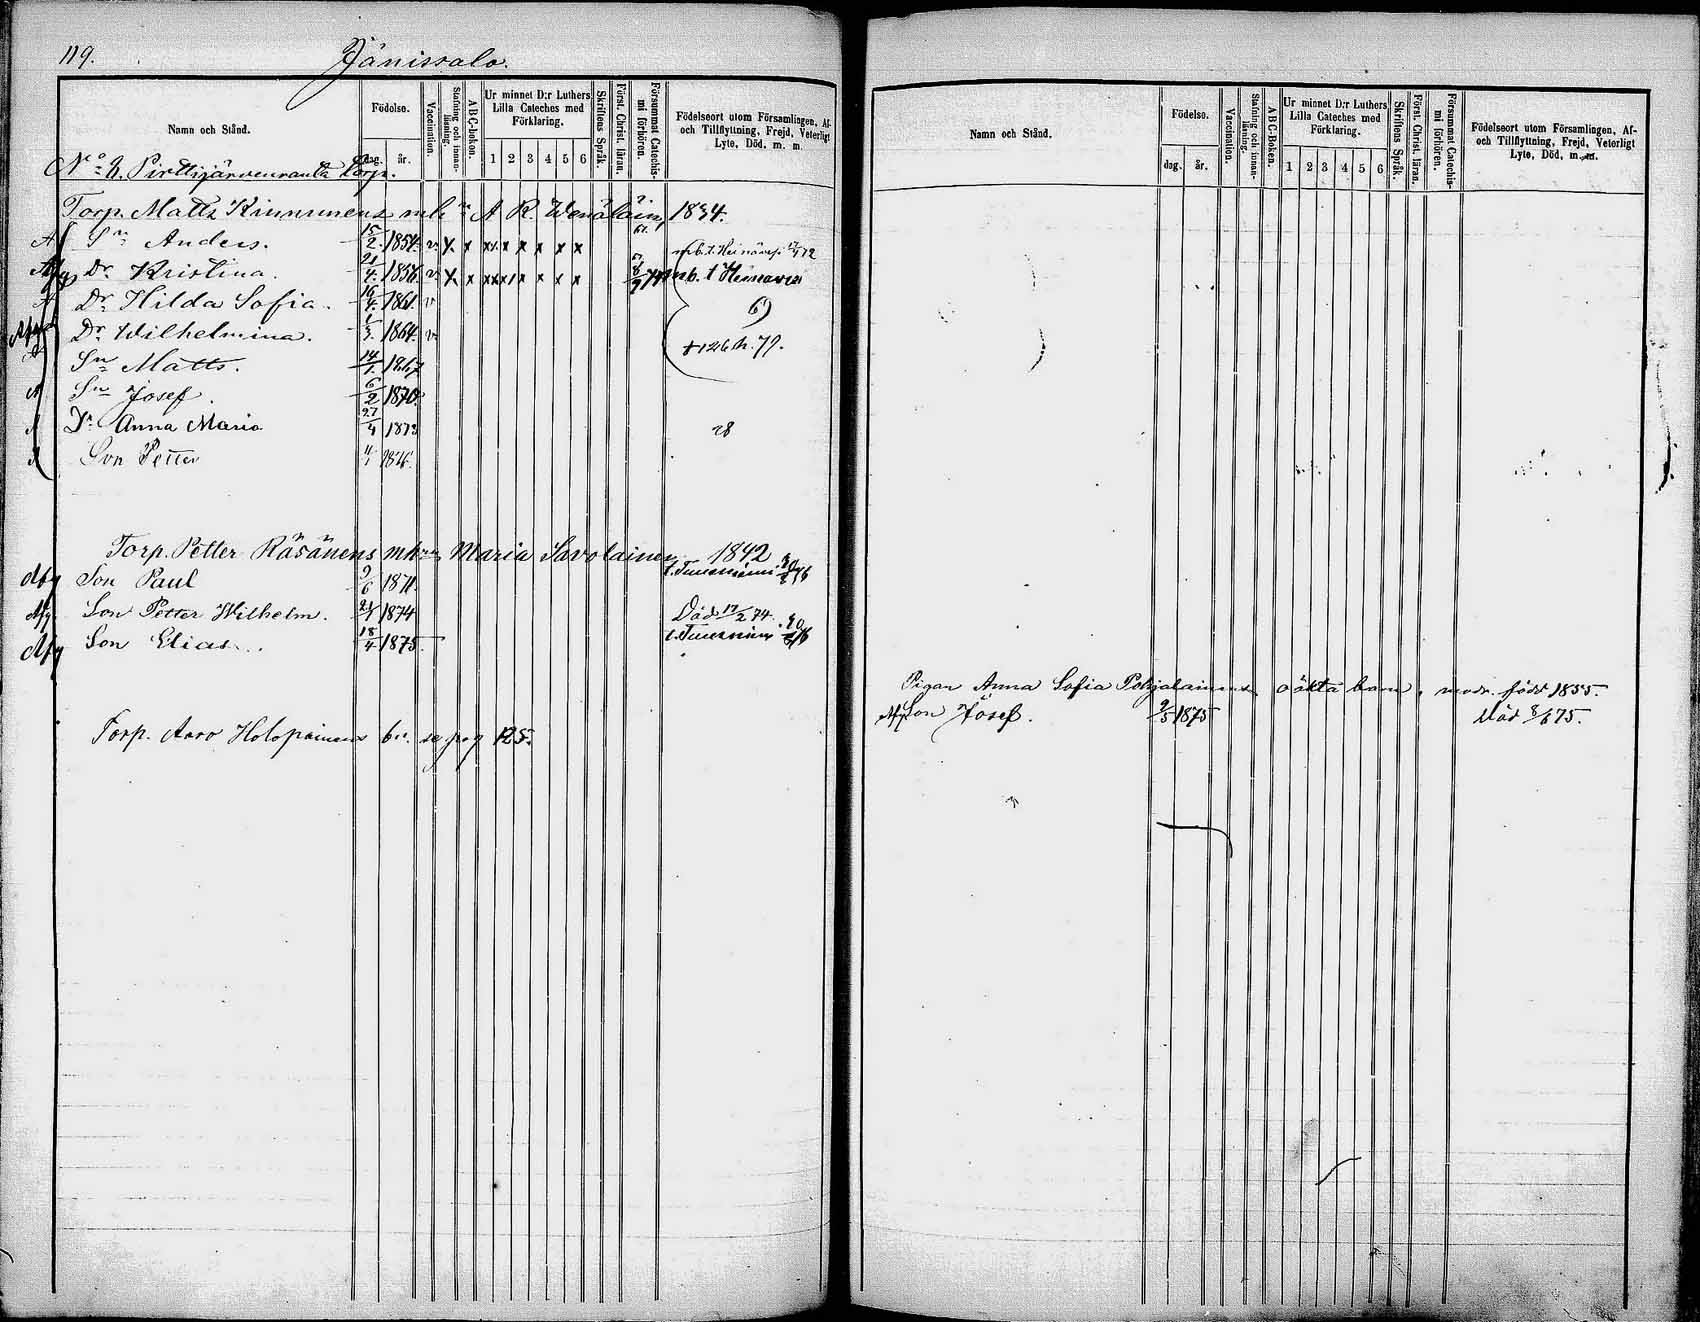 119.
Jänissalo.
Namn och Stånd.
Födelse.
dag. år.
Vaccination.
Stafning och innan-läsning.
A B C-boken.
Ur minnet D:r Luthers Lilla Cateches med Förklaring.
1 2 3 4 5 6
Skriftens Språk.
Först. Christ. läran.
Försummat Catechismi förhören.
Födelseort utom Församlingen, Af- och Tillflyttning, Frejd, Veterligt Lyte, Död, m. m.
N:o 2. Pirttijärvenranta Torp.
Torp. Matts Kinnunens mh:n A R. Wenäläin, 1834.
Sn Anders. 15/2 1854. v x x xx x x x x x mb. t. Heinävesi 72
Afg Dr Kristina. 21/4 1856. v x x xxx x x x x mb. t Heinävesi
Dr Hilda Sofia. 16/4 1861. v
Dr Wilhelmina. 1/3 1864. v
Sn Matts. 14/1 1867
Sn Josef. 6/2 1870.
Dr Anna Maria 27/4 1873 28
Son Petter
Torp. Petter Räsänens mh:n Maria Savolainen 1842
Afg Son Paul 9/6 1871.
Afg. Son Petter Wilhelm. 1874 Död 17/2 74.
Afg Son Elias. 18/4 1875
Torp. Aaro Holopainens se pag 125.
Namn och Stånd.
Födelse.
dag. år.
Vaccination.
Stafning och innan-läsning.
A B C-Boken.
Ur minnet D:r Luthers Lilla Cateches med Förklaring.
1 2 3 4 5 6
Skriftens Språk.
Först. Christ. läran.
Försummat Catechismi förhören.
Födelseort utom Församlingen, Af- och Tillflyttning, Frejd, Veterligt Lyte, Död, m. m.
Pigan Anna Sofia Pohjalainens oäkta barn, modr. född 1855.
Afg Son Josef. 9/5 1875 Död 8/6 75.